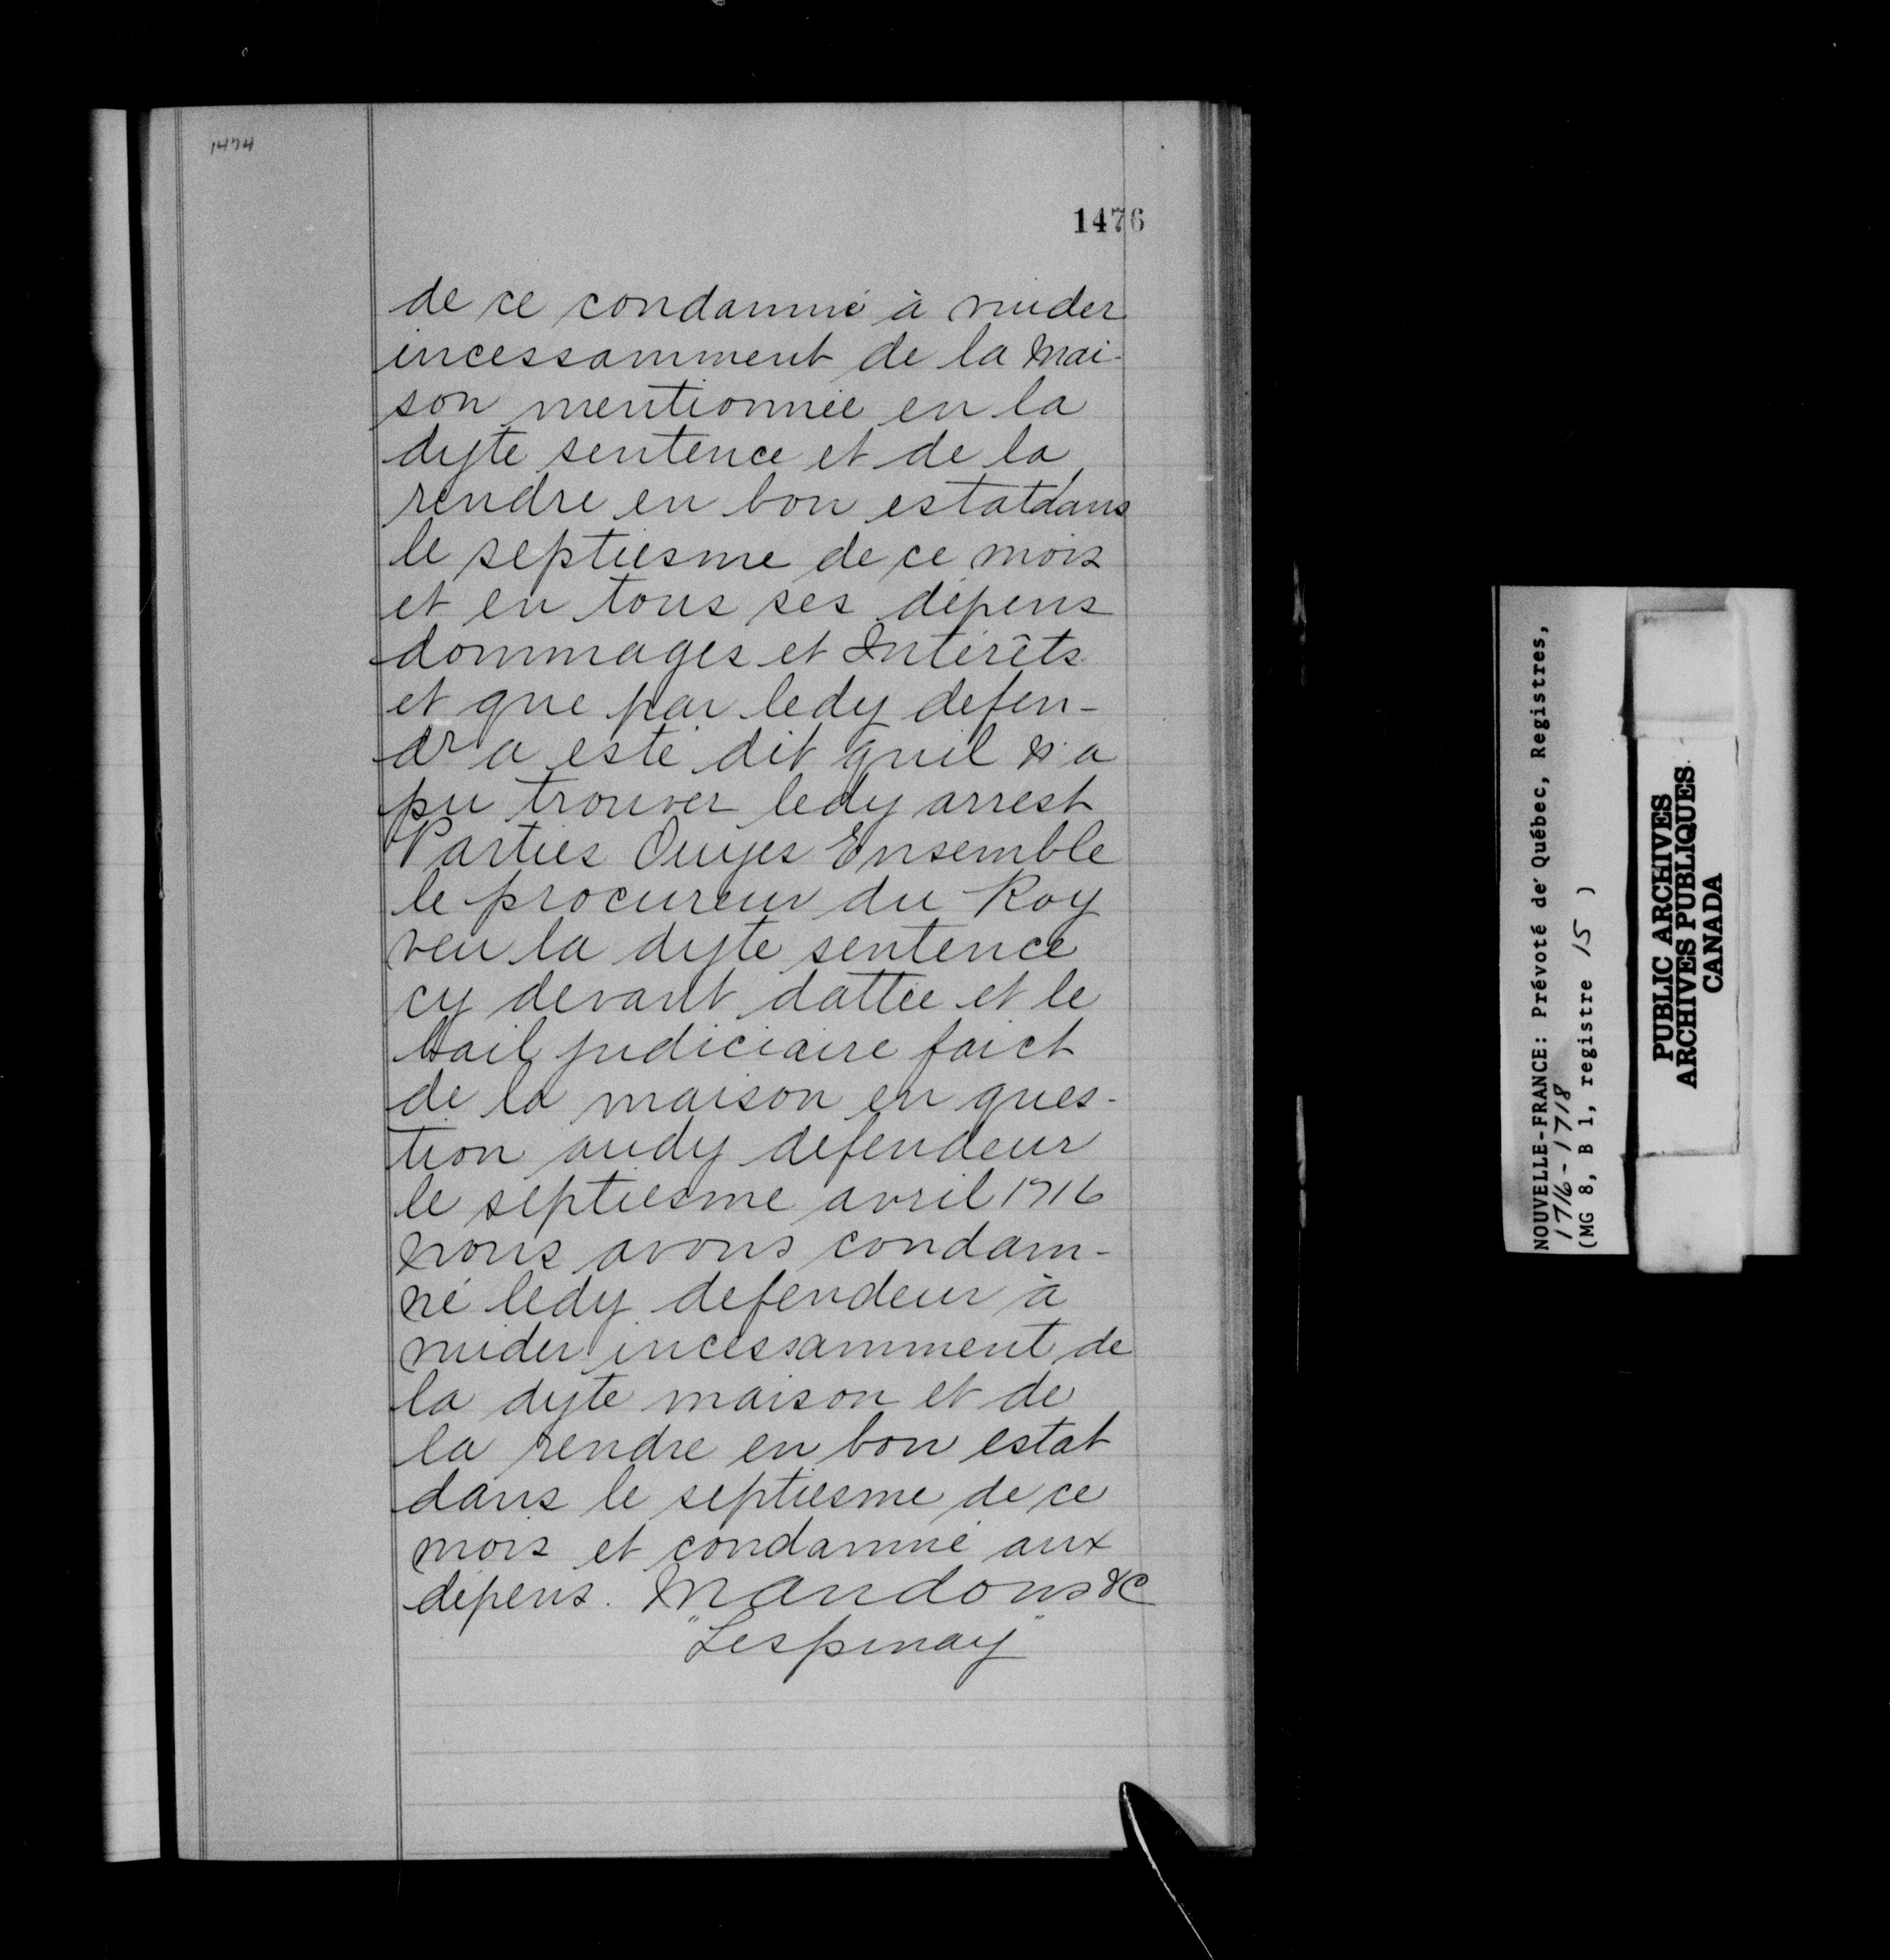 1474
1476
de ce condamné à vuider
incessamment de la mai-
son mentionnée en la
dyte sentence et de la
rendre en bon estat dans
le septiesme de ce mois
et en tous ses dépens
dommages et Intérêts
et que par ledy defen-
dr a esté dit quil n'a
pu trouver ledy arrest
Parties Ouyes Ensemble
le procureur du Roy
veu la dyte sentence
cy devant dattée et le
bail judiciaire faict
de la maison en ques-
tion audy defendeur
le septiesme avril 1716
nous avons condam-
né ledy defendeur à
vuider incessamment de
la dyte maison et de
la rendre en bon estat
dans le septiesme de ce
mois et condamné aux
dépens. Mandons &c
"Lespinay"
NOUVELLE-FRANCE: Prévôté de Québec, Registres,
1716-1718
(MG 8, B 1, registre 15 )
PUBLIC ARCHIVES
ARCHIVES PUBLIQUES
CANADA